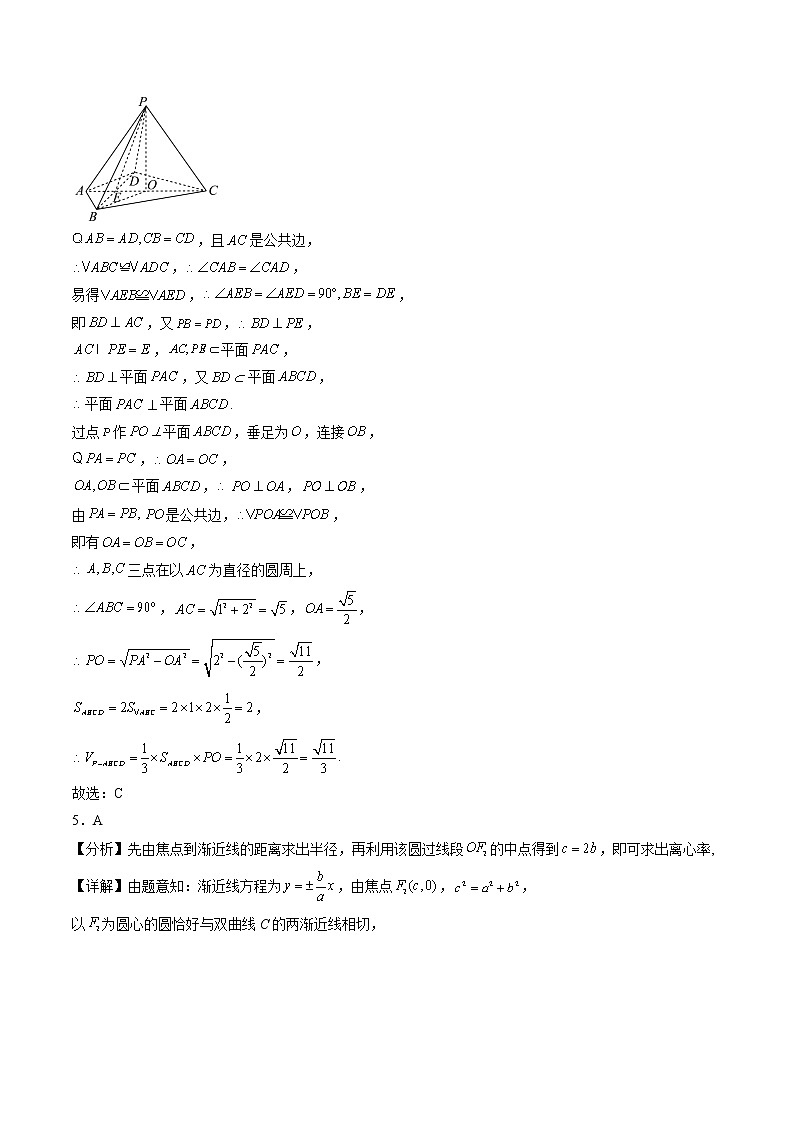 P
A D O C
E
B
Q AB = AD, CB = CD，且 AC 是公共边，
∴V ABC ≌ V ADC，∴ ∠CAB = ∠CAD，
易得 V AEB ≌ V AED，∴ ∠AEB = ∠AED = 90°, BE = DE，
即 BD ⊥ AC，又 PB = PD，∴ BD ⊥ PE，
AC I PE = E，AC, PE ⊂ 平面 PAC，
∴ BD ⊥ 平面 PAC，又 BD ⊂ 平面 ABCD，
∴ 平面 PAC ⊥ 平面 ABCD．
过点 P 作 PO ⊥ 平面 ABCD，垂足为 O，连接 OB，
Q PA = PC，∴ OA = OC，
OA, OB ⊂ 平面 ABCD，∴ PO ⊥ OA，PO ⊥ OB，
由 PA = PB, PO 是公共边，∴V POA ≌ V POB，
即有 OA = OB = OC，
∴ A, B, C 三点在以 AC 为直径的圆周上，
∴ ∠ABC = 90°，AC = √(1² + 2²) = √5，OA = √5/2，
∴ PO = √(PA² − OA²) = √(2² − (√5/2)²) = √11/2，
S_{ABCD} = 2S_{V ABC} = 2×1×2×1/2 = 2，
∴ V_{P−ABCD} = 1/3 × S_{ABCD} × PO = 1/3 × 2 × √11/2 = √11/3．
故选：C
5．A
【分析】先由焦点到渐近线的距离求出半径，再利用该圆过线段 OF₂ 的中点得到 c = 2b，即可求出离心率,
【详解】由题意知：渐近线方程为 y = ± b/a x，由焦点 F₂(c,0)，c² = a² + b²，
以 F₂ 为圆心的圆恰好与双曲线 C 的两渐近线相切，